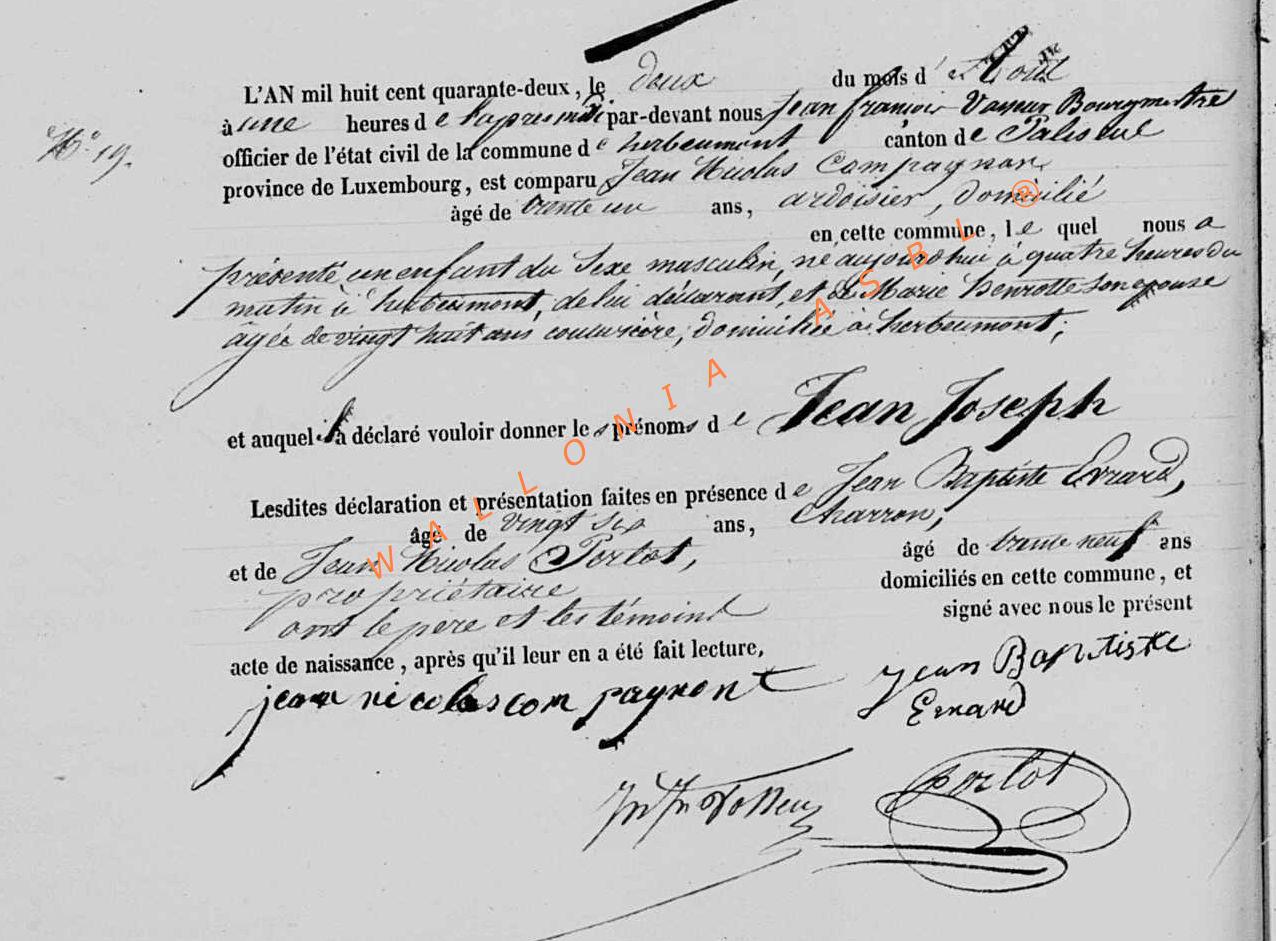 L'AN mil huit cent quarante-deux, le deux du mois d'Aout
N° 19.
à une heures de l'apres midi par-devant nous Jean françois Bourgmestre
officier de l'état civil de la commune de herbeumont canton de Paliseul
province de Luxembourg, est comparu Jean Nicolas Compagnon
âgé de trente un ans, ardoisier, domicilié
en cette commune, le quel nous a
présenté un enfant du sexe masculin, né aujourd'hui à quatre heures du
matin à herbeumont, de lui déclarant, et de Marie henrotte son epouse
âgée de vingt huit ans couturière, domiciliée à herbeumont;
et auquel il a déclaré vouloir donner les prénoms de Jean Joseph
Lesdites déclaration et présentation faites en présence de Jean Baptiste Evrard,
âgé de vingt six ans, charron,
et de Jean Nicolas Portot, âgé de trente neuf ans
propriétaire domiciliés en cette commune, et
ont le pere et les témoins signé avec nous le présent
acte de naissance, après qu'il leur en a été fait lecture,
jean nicolas compagnont Jean Baptiste
Evrard
portot
WALLONIA ASBL ®